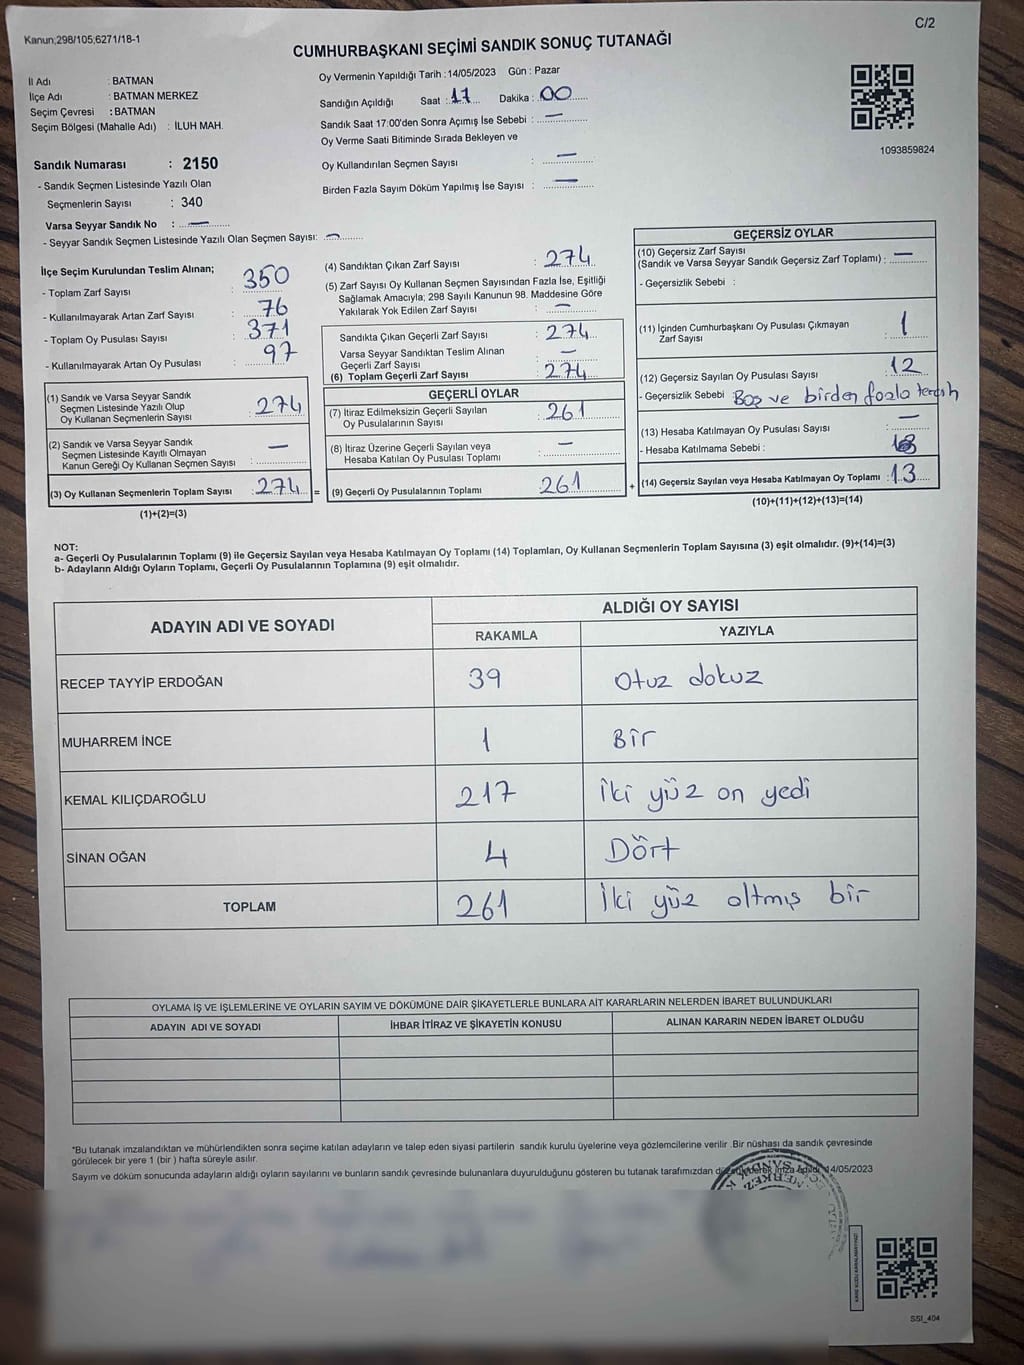 Kanun;298/105;6271/18-1
C/2
CUMHURBAŞKANI SEÇİMİ SANDIK SONUÇ TUTANAĞI
İl Adı : BATMAN
İlçe Adı : BATMAN MERKEZ
Seçim Çevresi : BATMAN
Seçim Bölgesi (Mahalle Adı) : İLUH MAH.
Sandık Numarası : 2150
- Sandık Seçmen Listesinde Yazılı Olan
Seçmenlerin Sayısı : 340
Varsa Seyyar Sandık No : —
- Seyyar Sandık Seçmen Listesinde Yazılı Olan Seçmen Sayısı: —
Oy Vermenin Yapıldığı Tarih : 14/05/2023 Gün : Pazar
Sandığın Açıldığı Saat : 17 Dakika : 00
Sandık Saat 17:00'den Sonra Açımış İse Sebebi : —
Oy Verme Saati Bitiminde Sırada Bekleyen ve
Oy Kullandırılan Seçmen Sayısı : —
Birden Fazla Sayım Döküm Yapılmış İse Sayısı : —
1093859824
İlçe Seçim Kurulundan Teslim Alınan;
- Toplam Zarf Sayısı : 350
- Kullanılmayarak Artan Zarf Sayısı : 76
- Toplam Oy Pusulası Sayısı : 371
- Kullanılmayarak Artan Oy Pusulası : 97
(1) Sandık ve Varsa Seyyar Sandık
Seçmen Listesinde Yazılı Olup
Oy Kullanan Seçmenlerin Sayısı : 274
(2) Sandık ve Varsa Seyyar Sandık
Seçmen Listesinde Kayıtlı Olmayan
Kanun Gereği Oy Kullanan Seçmen Sayısı : —
(3) Oy Kullanan Seçmenlerin Toplam Sayısı : 274 =
(1)+(2)=(3)
(4) Sandıktan Çıkan Zarf Sayısı : 274
(5) Zarf Sayısı Oy Kullanan Seçmen Sayısından Fazla İse, Eşitliği
Sağlamak Amacıyla; 298 Sayılı Kanunun 98. Maddesine Göre
Yakılarak Yok Edilen Zarf Sayısı : —
Sandıkta Çıkan Geçerli Zarf Sayısı : 274
Varsa Seyyar Sandıktan Teslim Alınan
Geçerli Zarf Sayısı : —
(6) Toplam Geçerli Zarf Sayısı : 274
GEÇERLİ OYLAR
(7) İtiraz Edilmeksizin Geçerli Sayılan
Oy Pusulalarının Sayısı : 261
(8) İtiraz Üzerine Geçerli Sayılan veya
Hesaba Katılan Oy Pusulası Toplamı : —
(9) Geçerli Oy Pusulalarının Toplamı : 261 +
GEÇERSİZ OYLAR
(10) Geçersiz Zarf Sayısı
(Sandık ve Varsa Seyyar Sandık Geçersiz Zarf Toplamı) : —
- Geçersizlik Sebebi :
(11) İçinden Cumhurbaşkanı Oy Pusulası Çıkmayan
Zarf Sayısı : 1
(12) Geçersiz Sayılan Oy Pusulası Sayısı : 12
- Geçersizlik Sebebi Boş ve birden fazla tercih
(13) Hesaba Katılmayan Oy Pusulası Sayısı : —
- Hesaba Katılmama Sebebi :
(14) Geçersiz Sayılan veya Hesaba Katılmayan Oy Toplamı : 13
(10)+(11)+(12)+(13)=(14)
NOT:
a- Geçerli Oy Pusulalarının Toplamı (9) ile Geçersiz Sayılan veya Hesaba Katılmayan Oy Toplamı (14) Toplamları, Oy Kullanan Seçmenlerin Toplam Sayısına (3) eşit olmalıdır. (9)+(14)=(3)
b- Adayların Aldığı Oyların Toplamı, Geçerli Oy Pusulalarının Toplamına (9) eşit olmalıdır.
ADAYIN ADI VE SOYADI
ALDIĞI OY SAYISI
RAKAMLA YAZIYLA
RECEP TAYYİP ERDOĞAN 39 Otuz dokuz
MUHARREM İNCE 1 Bir
KEMAL KILIÇDAROĞLU 217 İki yüz on yedi
SİNAN OĞAN 4 Dört
TOPLAM 261 İki yüz altmış bir
OYLAMA İŞ VE İŞLEMLERİNE VE OYLARIN SAYIM VE DÖKÜMÜNE DAİR ŞİKAYETLERLE BUNLARA AİT KARARLARIN NELERDEN İBARET BULUNDUKLARI
ADAYIN ADI VE SOYADI İHBAR İTİRAZ VE ŞİKAYETİN KONUSU ALINAN KARARIN NEDEN İBARET OLDUĞU
*Bu tutanak imzalandıktan ve mühürlendikten sonra seçime katılan adayların ve talep eden siyasi partilerin sandık kurulu üyelerine veya gözlemcilerine verilir .Bir nüshası da sandık çevresinde
görülecek bir yere 1 (bir ) hafta süreyle asılır.
Sayım ve döküm sonucunda adayların aldığı oyların sayılarını ve bunların sandık çevresinde bulunanlara duyurulduğunu gösteren bu tutanak tarafımızdan imza edildi. 14/05/2023
SSİ_404